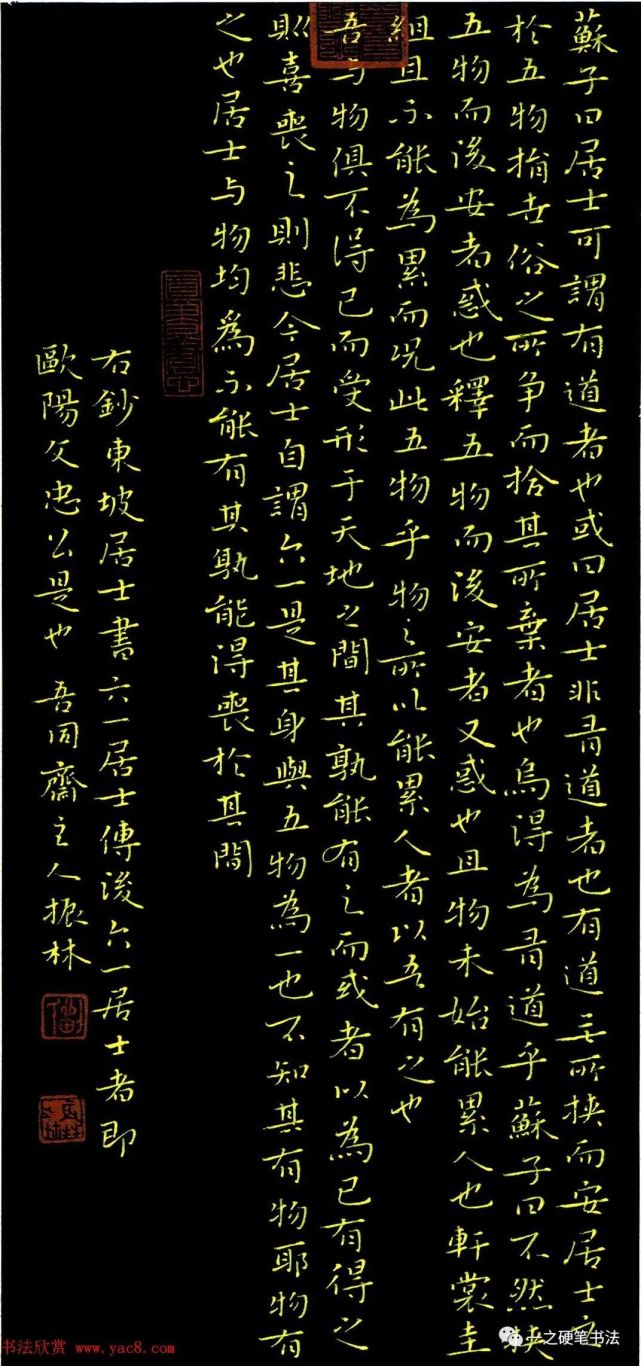 蘇子曰居士可謂有道者也或曰居士非有道者也有道无所挾而安居士之
於五物捐世俗之所争而拾其所棄者也烏得為有道乎蘇子曰不然挾
五物而後安者惑也釋五物而後安者又惑也且物未始能累人也軒裳圭
組且不能為累而况此五物乎物之所以能累人者以吾有之也
吾与物俱不得已而受形于天地之間其孰能有之而或者以為己有得之
則喜喪之則悲今居士自謂六一是其身與五物為一也不知其有物耶物有
之也居士与物均為不能有其孰能得喪於其間
右鈔東坡居士書六一居士傳後六一居士者即
歐陽文忠公是也 吾同齋主人振林
书法欣赏 www.yac8.com
一之硬笔书法